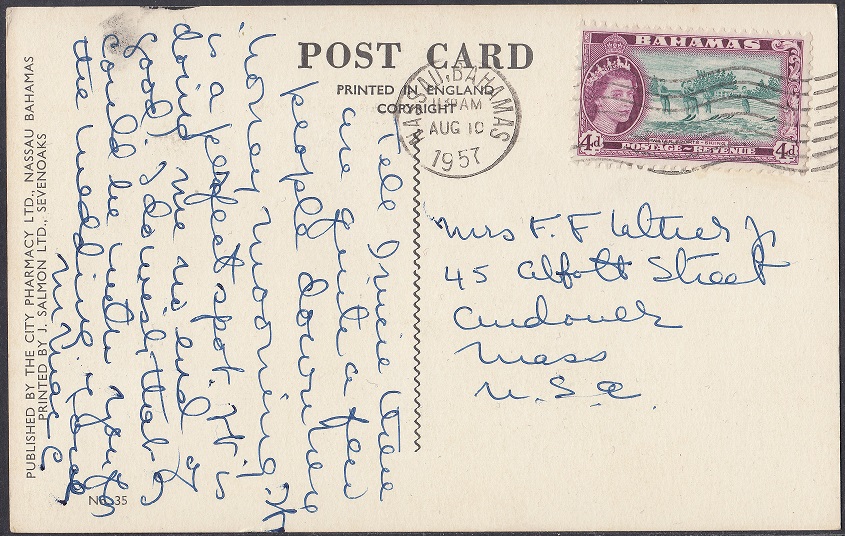 POST CARD
PRINTED IN ENGLAND
COPYRIGHT
NASSAU, BAHAMAS
AM
AUG 10
1957
BAHAMAS
4d
4d
POSTAGE - REVENUE
Mrs F. F
45 Abbott Street
Andover
Mass
U.S.A.
Tell there
are quite a few
people down here
honey mooning. It
is a perfect spot. It is
doing me no end of
good. I do wish that I
could be with you for
the wedding. Love
PUBLISHED BY THE CITY PHARMACY LTD., NASSAU BAHAMAS
PRINTED BY J. SALMON LTD., SEVENOAKS
No. 35